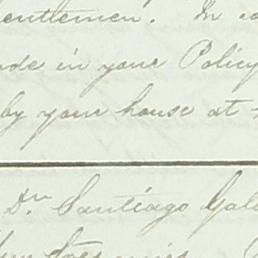 entlemen. In co
ade in your Policy
by your house at
Dn Santiago Gal